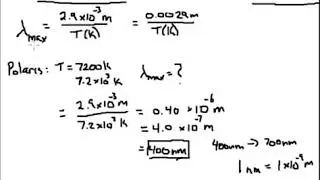 λmax = 2.9×10⁻³ m / T(K) = 0.0029m / T(K)
Polaris: T = 7200K λmax = ?
7.2×10³ K
= 2.9×10⁻³ m / 7.2×10³ K = 0.40 × 10⁻⁶ m
= 4.0 × 10⁻⁷ m
= 400nm 400nm → 700nm
1 nm = 1×10⁻⁹ m